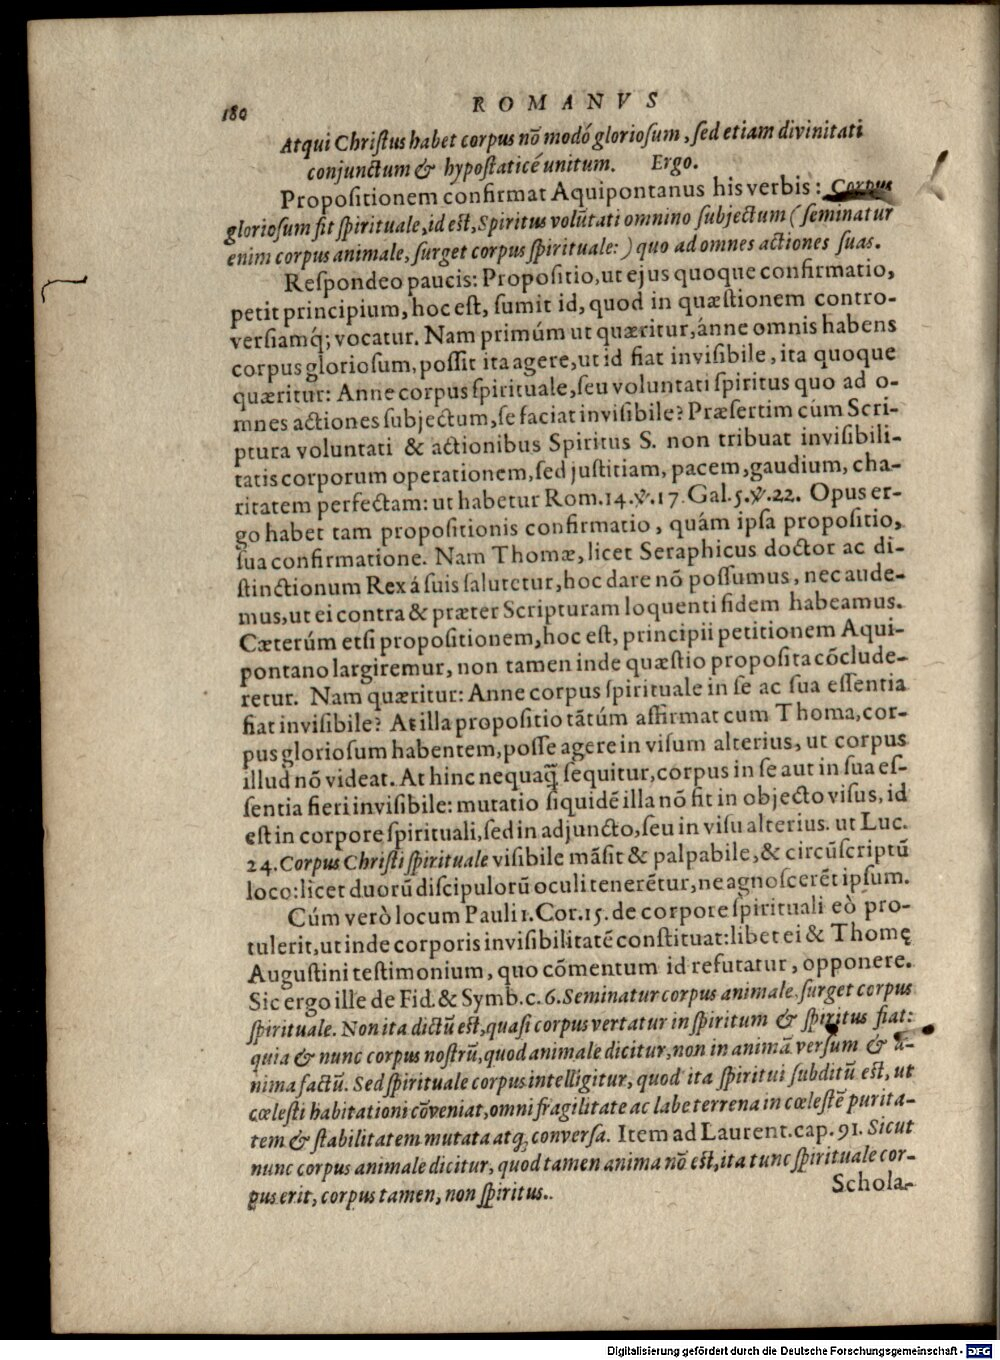 180
ROMANVS
Atqui Christus habet corpus nõ modó gloriosum, sed etiam divinitati
conjunctum & hypostaticé unitum. Ergo.
Propositionem confirmat Aquipontanus his verbis: Corpus
gloriosum fit spirituale, id est, Spiritus volũtati omnino subjectum (seminatur
enim corpus animale, surget corpus spirituale:) quo ad omnes actiones suas.
Respondeo paucis: Propositio, ut ejus quoque confirmatio,
petit principium, hoc est, sumit id, quod in quæstionem contro-
versiamq́; vocatur. Nam primúm ut quæritur, ánne omnis habens
corpus gloriosum, possit ita agere, ut id fiat invisibile, ita quoque
quæritur: Anne corpus spirituale, seu voluntati spiritus quo ad o-
mnes actiones subjectum, se faciat invisibile? Præsertim cúm Scri-
ptura voluntati & actionibus Spiritus S. non tribuat invisibili-
tatis corporum operationem, sed justitiam, pacem, gaudium, cha-
ritatem perfectam: ut habetur Rom. 14. ℣. 17. Gal. 5. ℣. 22. Opus er-
go habet tam propositionis confirmatio, quám ipsa propositio,
sua confirmatione. Nam Thomæ, licet Seraphicus doctor ac di-
stinctionum Rex á suis salutetur, hoc dare nõ possumus, nec aude-
mus, ut ei contra & præter Scripturam loquenti fidem habeamus.
Cæterúm etsi propositionem, hoc est, principii petitionem Aqui-
pontano largiremur, non tamen inde quæstio proposita cõclude-
retur. Nam quæritur: Anne corpus spirituale in se ac sua essentia
fiat invisibile? At illa propositio tãtúm affirmat cum Thoma, cor-
pus gloriosum habentem, posse agere in visum alterius, ut corpus
illud nõ videat. At hinc nequaq̃ sequitur, corpus in se aut in sua es-
sentia fieri invisibile: mutatio siquidẽ illa nõ fit in objecto visus, id
est in corpore spirituali, sed in adjuncto, seu in visu alterius. ut Luc.
24. Corpus Christi spirituale visibile mãsit & palpabile, & circũscriptũ
loco: licet duorũ discipulorũ oculi tenerẽtur, ne agnoscerẽt ipsum.
Cúm verò locum Pauli 1. Cor. 15. de corpore spirituali eò pro-
tulerit, ut inde corporis invisibilitatẽ constituat: libet ei & Thomę
Augustini testimonium, quo cõmentum id refutatur, opponere.
Sic ergo ille de Fid. & Symb. c. 6. Seminatur corpus animale, surget corpus
spirituale. Non ita dictũ est, quasi corpus vertatur in spiritum & spiritus fiat:
quia & nunc corpus nostrũ, quod animale dicitur, non in animã versum & a-
nima factũ. Sed spirituale corpus intelligitur, quod ita spiritui subditũ est, ut
cœlesti habitationi cõveniat, omni fragilitate ac labe terrena in cœlestẽ purita-
tem & stabilitatem mutata atq; conversa. Item ad Laurent. cap. 91. Sicut
nunc corpus animale dicitur, quod tamen anima nõ est, ita tunc spirituale cor-
pus erit, corpus tamen, non spiritus..
Schola-
Digitalisierung gefördert durch die Deutsche Forschungsgemeinschaft - DFG